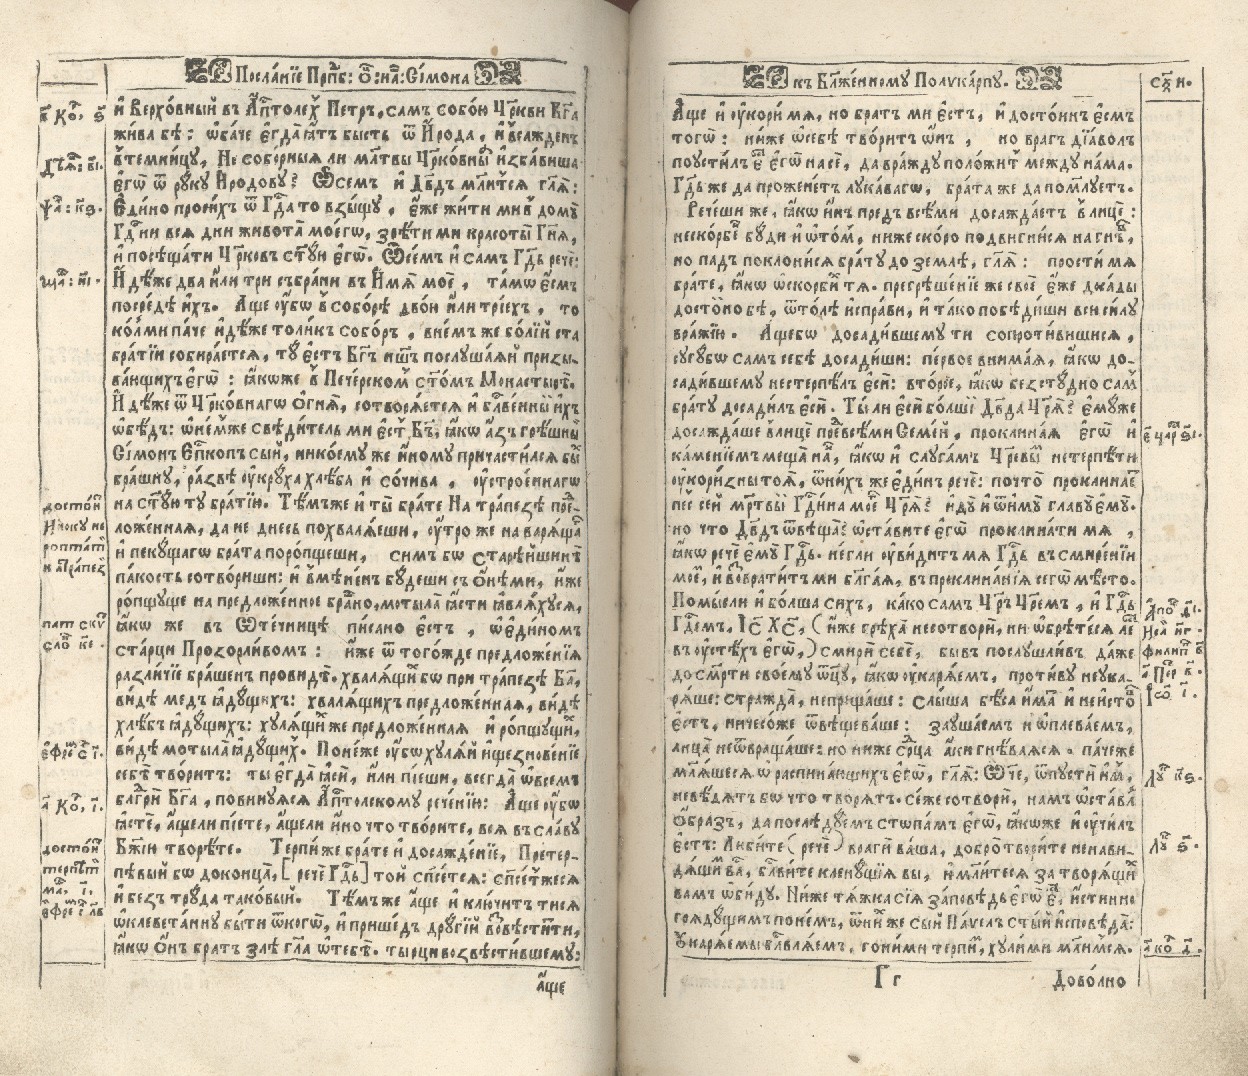 Посла́нїе Прпⷣб: ѻ҃: на́: Сі́мона
и҆ Верхо́вный въ А҆пⷭ҇толеⷯ Петръ, самъ собо́ю Црⷦ҇ви Бг҃а
жи́ва бѣ: ѻ҆ба́че є҆гда̀ ꙗ҆тъ бысть ѿ И҆́рода, и҆ всажде́нъ
в̾темни́цу, Не собо́рныꙗ ли мл҃твы Црⷦ҇о́вныѧ и҆зба́виша
є҆гѡ̀ ѿ ру́ку И҆́родову? Ѽ семъ и҆ Дв҃дъ мл҃и́тсѧ гл҃ѧ:
Є҆ди́но проси́хъ ѿ Гдⷭ҇а то взыщу̀, є҆́же жи́ти ми в̾ дому̀
Гдⷭ҇ни всѧ дни живота̀ моегѡ̀, зрѣ́ти ми красоты̀ Гнⷭ҇ѧ,
и҆ посѣща́ти Црⷦ҇овь ст҃у́ю є҆гѡ̀. Ѽ се́мъ и҆ самъ Гдⷭ҇ь рече:
И҆дѣ́же два̀ и҆лѝ три събра́ни въ И҆́мѧ моѐ, та́мѡ є҆́смъ
посредѣ̀ и҆́хъ. Аще ᲂу҆́бѡ в̾ собо́рѣ двою̀ и҆лѝ трїе́хъ, то
ко́лми па́че и҆дѣ́же толи́къ собо́ръ, в̾не́мъ же бо́лїй ста
бра́тїи собира́етсѧ, ту̀ є҆́стъ Бг҃ъ и҆шъ послуша́ѧй призы-
ва́ющихъ є҆го̀: ꙗ҆́коже в̾ Пече́рскомъ ст҃о́мъ Монастырѣ̀.
И҆дѣ́же ѿ Црⷦ҇о́внагѡ ѻ҆гнѧ̀, сотворѧ́етсѧ и҆ блⷭ҇ве́нный и҆́хъ
ѻ҆бѣ́дъ: ѡ҆ не́мже свѣдѣ́тель ми є҆́стъ Бг҃ъ, ꙗ҆́кѡ а҆́зъ грѣ́шный
Сі́монъ Є҆пⷭ҇копъ сый, ни ко́ему же и҆но́му причасти́лсѧ бы́хъ
бра́шну, ра́звѣ ᲂу҆кру́ха хлѣ́ба и҆ со́чива, ᲂу҆строе́ннагѡ
на ст҃у́ю ту̀ бра́тїю. Тѣ́мъже и҆ ты̀ бра́те На тра́пезѣ пре-
ло́женнаѧ, да не дне́сь похвалѧ́еши, ᲂу҆́тро же на варѧ́щагѡ
и҆ пеку́щагѡ бра́та поро́пщеши, симъ бо старѣ́йшинѣ
па́кость сотвори́ши: и҆ вмѣне́нъ бу́деши съ ѻ҆нѣ́ми, и҆́же
ро́пщуще на предложе́нное бра́шно, моты́ла ꙗ҆сти ꙗ҆влѧ́хусѧ,
ꙗ҆́кѡ же въ Ѻте́чницѣ пи́сано є҆́стъ, ѡ҆ є҆ди́номъ
ста́рци Прозорли́вомъ: и҆́же ѿ того́жде предложе́нїѧ
разли́чїе бра́шенъ прови́дѣ. хвалѧ́щиⷯ бо при тра́пезѣ Бг҃а,
ви́дѣ ме́дъ ꙗ҆ду́щихъ: хвалѧ́щихъ предложе́ннаѧ, ви́дѣ
хлѣ́бъ ꙗ҆ду́щихъ: хулѧ́щиⷯ же предложе́ннаѧ и҆ ро́пщущиⷯ,
ви́дѣ моты́ла ꙗ҆ду́щиⷯ. Поне́же ᲂу҆́бѡ хулѧ́й и҆щезнове́нїе
себѣ̀ твори́тъ: ты̀ є҆гда̀ ꙗ҆сѝ, и҆лѝ пїе́ши, всегда̀ ѡ҆ все́мъ
блгⷣрѝ Бг҃а, повину́ѧсѧ А҆пⷭ҇толскому рече́нїю: А҆́ще ᲂу҆́бѡ
ꙗ҆стѐ, а҆́щели пїе́те, а҆́щели и҆́но что твори́те, всѧ въ сла́ву
Бж҃їю твори́те. Терпѝ же бра́те и҆ досажде́нїе, Претер-
пѣ́вый бо до конца̀, [ речѐ Гдⷭ҇ь ] той сп҃се́тсѧ: сп҃се́тжесѧ
и҆ безъ труда̀ тако́вый. Тѣ́мъже а҆́ще и҆ ключи́тъ ти сѧ
ѡ҆клевета́нну бы́ти ѿ когѡ̀, и҆ прише́дъ другі́й возвѣсти́ти,
ꙗ҆́кѡ ѻ҆́нъ бра́тъ злѣ̀ гл҃а ѡ҆ тебѣ̀. ты рцы̀ возвѣсти́вшему:
а҆́ще
а҃ Ко́р, ѕ҃
Дѣѧ́: в҃і.
ѱа́: к҃ѕ.
м҃а: и҃і.
досто́итъ
И҆́ноку не
ропта́ти
на тра́пезѣ
патери́къ
сло́ к҃е.
є҆фре́ сѵ́ і҃.
а҃ Ко́р, і҃.
досто́итъ
терпѣ́ти
ма́, і҃.
є҆фре́ с л҃в
къ Блж҃е́нному Полѵка́рпу.
сѯ҃и.
А҆́ще и҆ ᲂу҆корѝ мѧ, но бра́тъ ми є҆́стъ, и҆ досто́инъ є҆́смъ
тогѡ̀: ни́же ѡ҆ себѣ̀ твори́тъ ѻ҆́нъ, но вра́гъ дїа́волъ
поусти́лъ є҆́стъ є҆гѡ̀ на сѐ, да вражду̀ положи́тъ между на́ма.
Гдⷭ҇ь же да прожене́тъ лука́вагѡ, бра́та же да поми́луетъ.
Рече́ши же, ꙗ҆́кѡ и҆́нъ предъ всѣ́ми досажда́етъ в̾ лицѐ:
не ско́рбенъ бу́ди и҆ ѡ҆ то́мъ, ни́же ско́ро подви́гнисѧ на гнѣ́въ,
но па́дъ поклони́сѧ бра́ту до землѣ̀, гл҃ѧ: простѝ мѧ
бра́те, ꙗ҆́кѡ ѡ҆скорби́хъ тѧ. прегрѣше́нїе же своѐ є҆́же до а҆́ды
досто́йно бѣ, ѿто́лѣ и҆спра́ви, и҆ та́ко побѣ́диши всю̀ си́лу
вра́жїю. А҆́щебѡ досади́вшему ти сопроти́вишисѧ,
сугу́бѡ са́мъ себѣ̀ досади́ши: пе́рвое внима́ѧ, ꙗ҆́кѡ до-
сади́вшему не стерпѣ́лъ є҆сѝ: второ́е, ꙗ҆́кѡ безсту́дно са́мъ
бра́ту досади́лъ є҆сѝ. Ты ли є҆сѝ бо́лшїй Дв҃да Црⷭ҇ѧ? є҆му́же
досажда́ше в̾ лицѐ пре́д всѣ́ми Семе́й, проклина́ѧ є҆гѡ̀ и҆
ка́менїемъ меща̀ на́нь, ꙗ҆́кѡ и҆ слуга́мъ Црⷭ҇евымъ не терпѣ́ти
ᲂу҆кори́зны тоѧ̀, ѿ ни́хъ же є҆ди́нъ речѐ: почто̀ проклина́етъ
пе́съ сей ме́ртвый Гдⷭ҇и́на моегѡ̀ Црⷭ҇ѧ? и҆ду̀ и҆ ѿиму̀ главу̀ є҆му̀.
но что Дв҃дъ ѿвѣща̀? ѡ҆ста́вите є҆гѡ̀ проклина́ти мѧ,
ꙗ҆́кѡ речѐ є҆му̀ Гдⷭ҇ь. негли ᲂу҆ви́дитъ мѧ Гдⷭ҇ь въ смире́нїи
мое́мъ, и҆ возврати́тъ ми блага́ѧ, въ проклина́нїѧ сегѡ̀ мѣ́сто.
Помы́сли и҆ бо́лша си́хъ, ка́ко са́мъ Црⷭ҇ь Црⷭ҇емъ, и҆ Гдⷭ҇ь
Гдⷭ҇емъ, І҆с Хс, ( и҆́же грѣха̀ не сотворѝ, ни ѡ҆брѣ́тесѧ ле́сть
въ ᲂу҆стѣ́хъ є҆гѡ̀, ) смирѝ себѐ, бывъ послушли́въ да́же
до сме́рти своему̀ Ѻ҆ц҃у, ꙗ҆́кѡ ᲂу҆карѧ́емъ, проти́ву не ᲂу҆ка-
рѧ́ше: стражда̀, не преща́ше: слы́ша бѣ́са и҆́маши и҆ неи́стовъ
є҆́стъ, ничесо́же ѿвѣщева́ше: зауша́емъ и҆ ѡ҆плева́емъ,
лица̀ не ѿвраща́ше: но ни́же се́рдца а҆́ки гнѣ́ваѧсѧ. па́чеже
молѧ́шесѧ ѡ҆ распина́ющихъ є҆гѡ̀, гл҃ѧ: Ѻ҆́ч҃е, ѿпустѝ и҆́мъ,
не вѣ́дѧтъ бо что творѧ́тъ. сѐ же сотворѝ, намъ ѡ҆ста́вль
ѻ҆́бразъ, да послѣ́дуемъ стопа́мъ є҆гѡ̀, ꙗ҆́коже и҆ ᲂу҆чи́лъ
є҆́стъ: Люби́те ( речѐ ) врагѝ ва́ша, добро̀ твори́те ненави-
дѧ́щимъ ва́съ, блⷭ҇ви́те клену́щїѧ вы, и҆ моли́тесѧ за творѧ́щиⷯ
вамъ ѡ҆би́ду. Ни́же тѧжка̀ сїѧ̀ за́повѣдь є҆гѡ̀ є҆́стъ, и҆́стинно
грѧду́щимъ по не́мъ, ѿ ни́х же сый Па́велъ ст҃ы́й и҆сповѣ́да:
ᲂу҆карѧ́емы блⷭ҇влѧ́емъ, гони́ми терпи́мъ, ху́лими мо́лимсѧ.
Г г
Дово́лно
в҃ цар ѕ҃і.
а҆по́ д҃і.
И҆са́ н҃г.
філип в҃
а҃ Пе́т в҃.
І҆ѡ, і҃.
Лу́ к҃г.
Лу́ ѕ҃.
а҃ ко́р д҃.